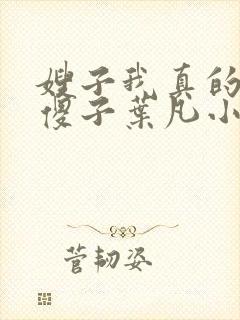 嫂子我真的
傻子葉凡小
菅韧姿